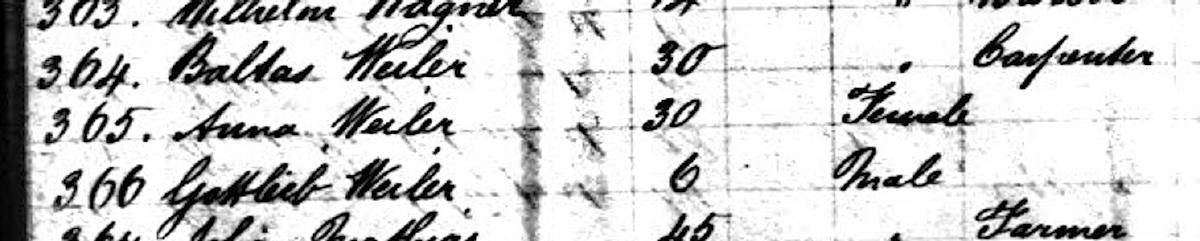 363. Wilhelm Wagner 14 "
364. Baltas Weiler 30 " Carpenter
365. Anna Weiler 30 Female
366 Gottlieb Weiler 6 Male
45 Farmer